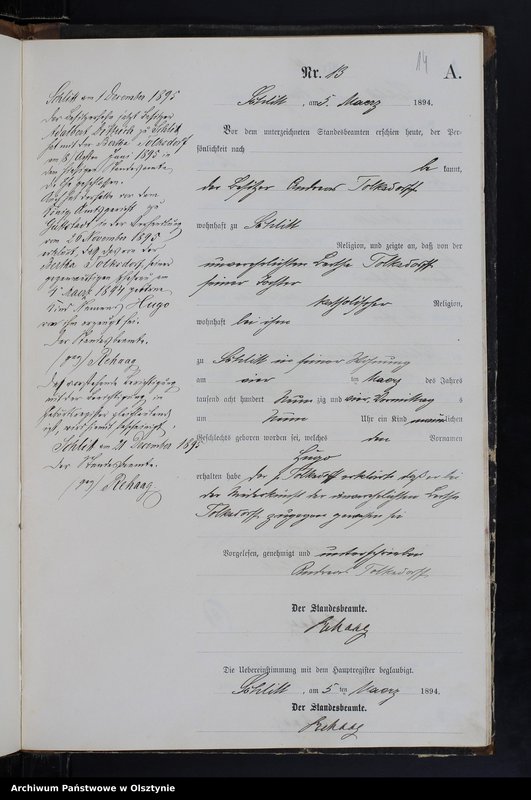 14
Nr. 13
A.
Schlitt, am 5. Maerz 1894.
Vor dem unterzeichneten Standesbeamten erschien heute, der Per-
sönlichkeit nach
be kannt,
der Besitzer Andreas Tolksdorf
wohnhaft zu Schlitt
Religion, und zeigte an, daß von der
unverehelichten Bertha Tolksdorf
seiner Tochter
katholischer Religion,
wohnhaft bei ihm
zu Schlitt in seiner Wohnung
am vier ten Maerz des Jahres
tausend acht hundert Neun zig und vier, Vormittag s
um Neun Uhr ein Kind männlichen
Geschlechts geboren worden sei, welches den Vornamen
Hugo
erhalten habe der p. Tolksdorf erklärte daß er bei
der Niederkunft der unverehelichten Bertha
Tolksdorf zugegen gewesen sei
Vorgelesen, genehmigt und unterschrieben
Andreas Tolksdorf
Der Standesbeamte.
Rehaag
Die Uebereinstimmung mit dem Hauptregister beglaubigt.
Schlitt, am 5 ten Maerz 1894.
Der Standesbeamte.
Rehaag
Schlitt am 1 Dezember 1895
Der Besitzersohn jetzt Besitzer
Adalbert zu Schlitt
hat mit der Bertha Tolksdorf
am Juni 1895 in
dem hiesigen Standesamte
die Ehe geschlossen.
Auch hat derselbe vor dem
König. Amtsgericht zu
Guttstadt in der Verhandlung
vom 26 November 1895
erklärt, daß das von der
Bertha Tolksdorf seiner
gegenwärtigen Ehefrau am
4 Maerz 1894 geborene
Kind Namens Hugo
von ihm erzeugt sei.
Der Standesbeamte.
(gez) Rehaag
Daß vorstehende Berichtigung
mit der Berichtigung im
Geburtsregister gleichlautend
ist, wird hiermit bescheinigt,
Schlitt am 21 Dezember 1895
Der Standesbeamte.
(gez) Rehaag
Archiwum Państwowe w Olsztynie
www.olsztyn.ap.gov.pl